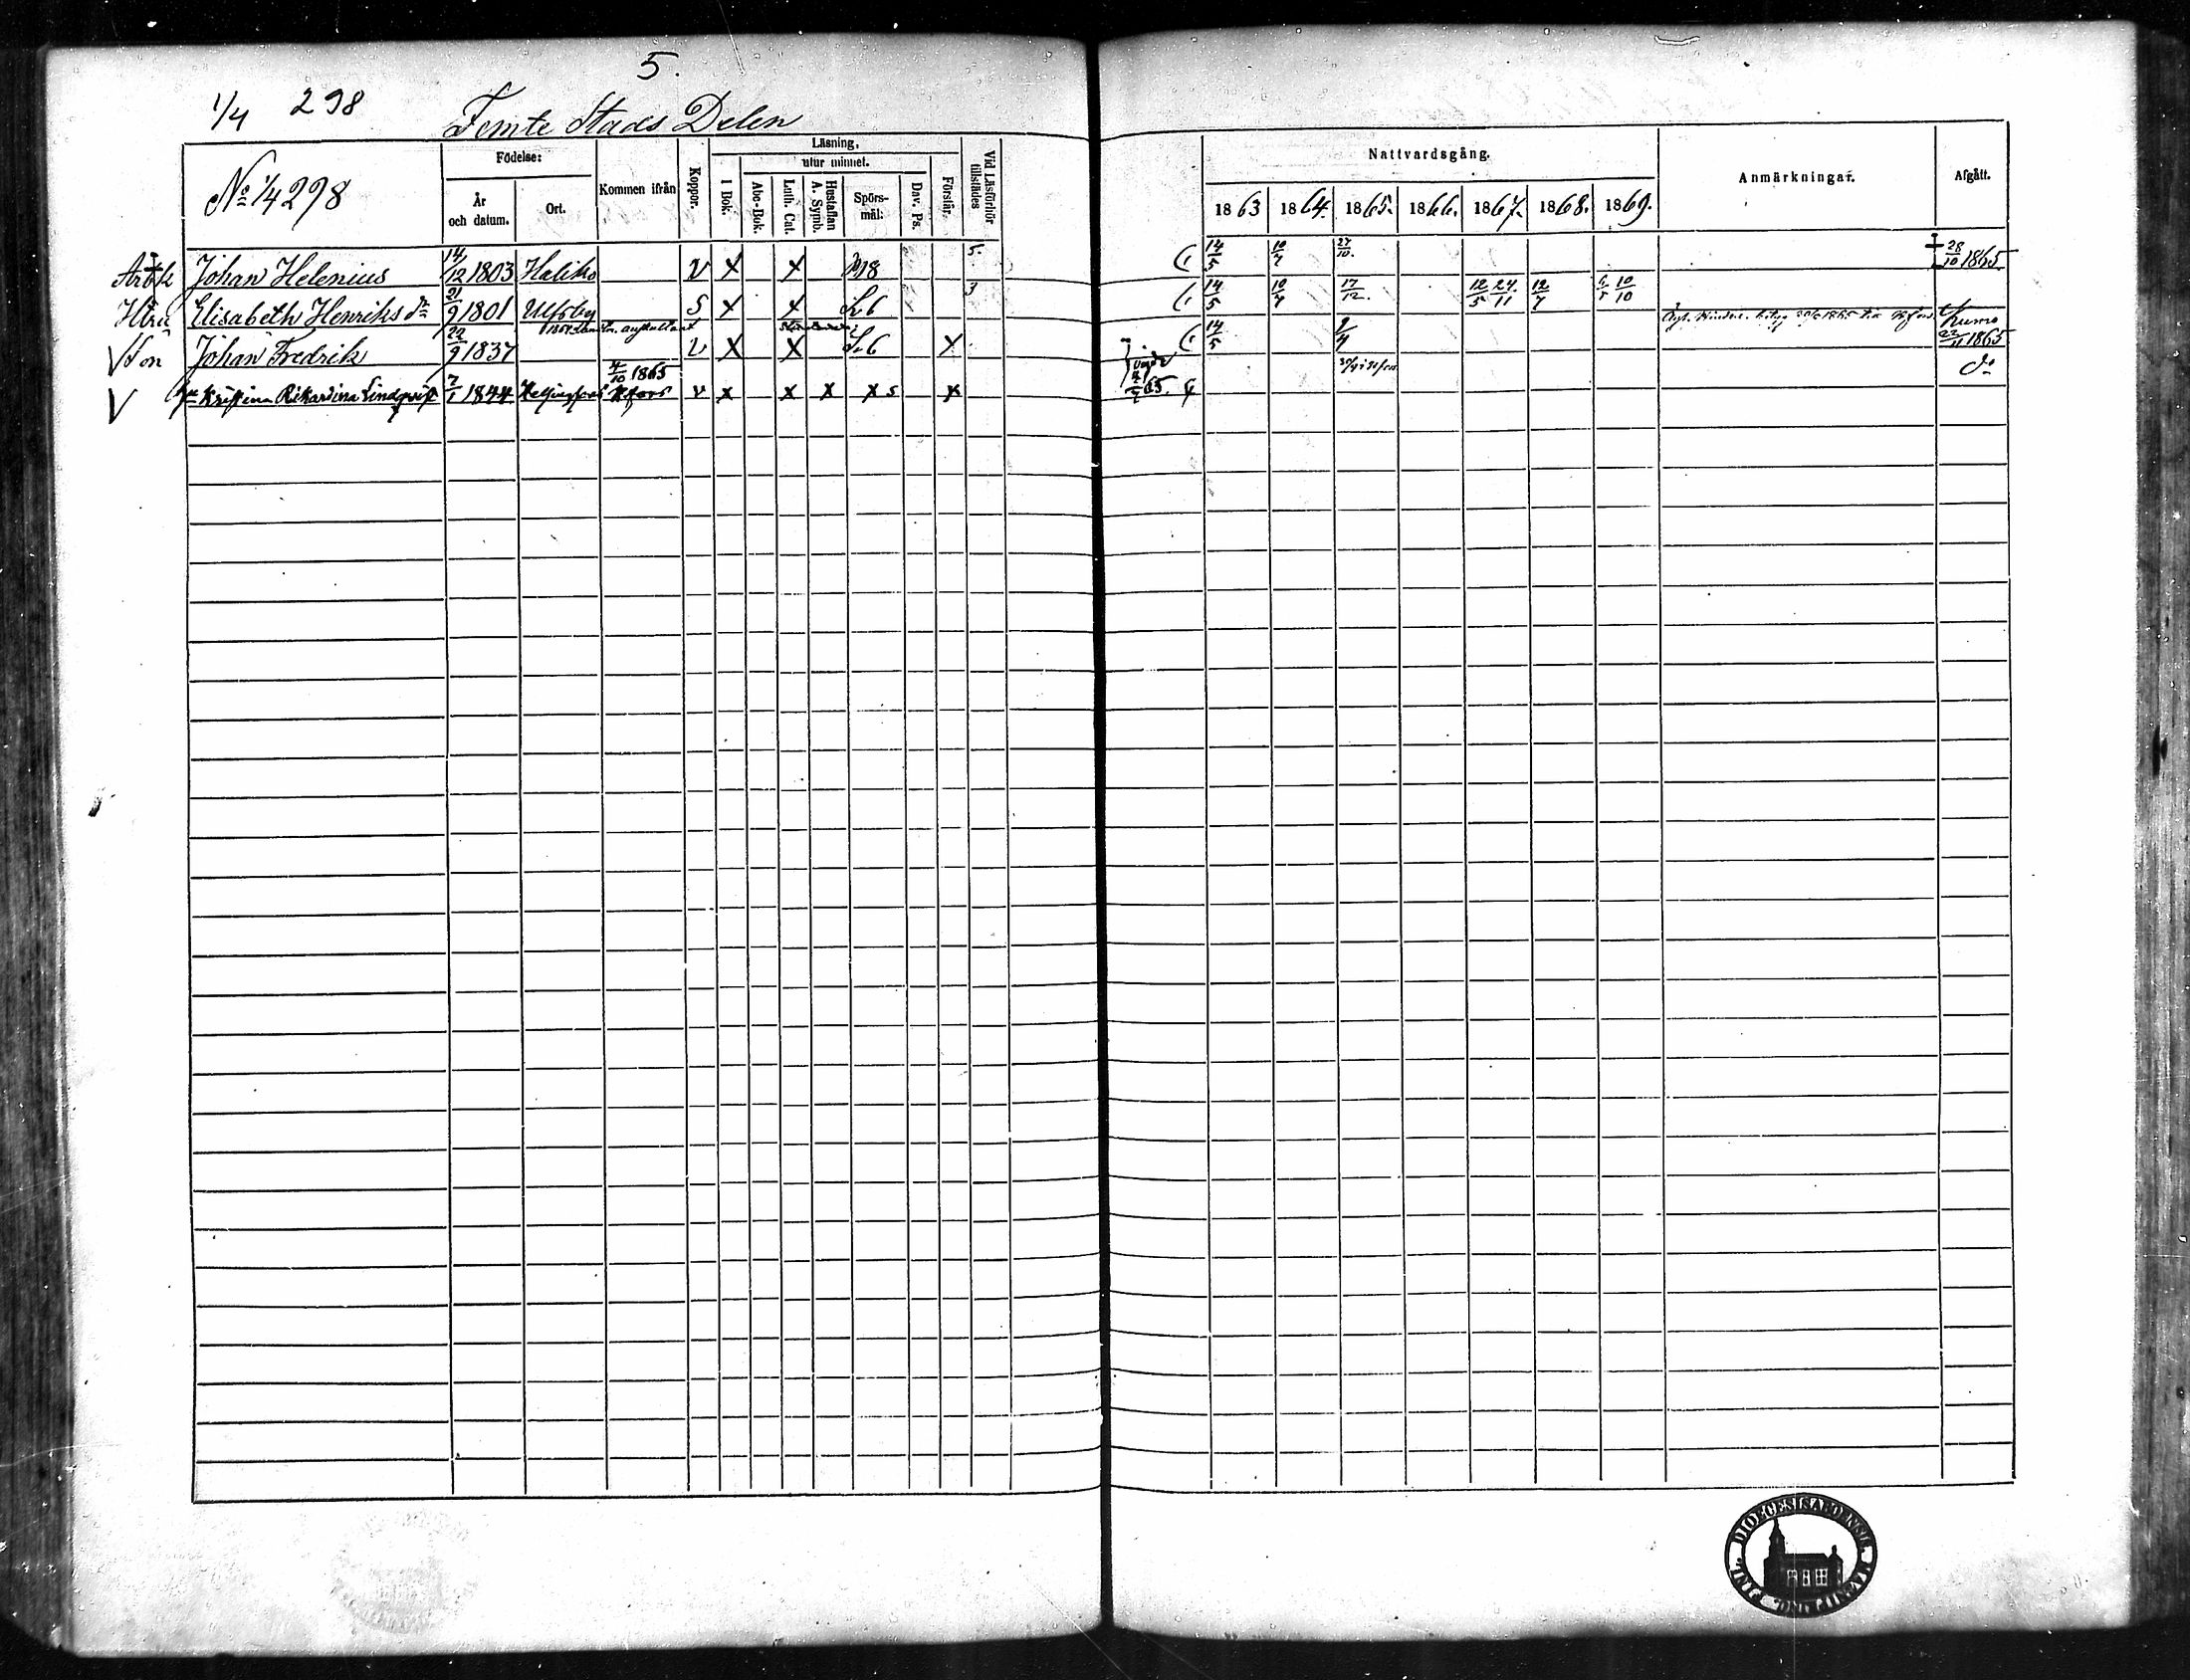 5.
1/4 298 Femte Stads Delen
Nº 1/4 298
Födelse:
År och datum.
Ort.
Kommen ifrån
Koppor.
Läsning,
utur minnet.
I Bok.
Abc-Bok.
Luth. Cat.
Hustaflan A. Symb.
Spörs-mål:
Dav. Ps.
Förstår.
Vid Läsförhör tillstädes
Nattvardsgång.
1863 1864. 1865. 1866. 1867. 1868. 1869.
Anmärkningar.
Afgått.
Johan Helenius 14/12 1803 Haliko V x x 18 5. 14/5 10/7 27/10. † 28/10 1865.
Hu Elisabeth Henriks dr 21/9 1801 Ulfsby S x x L6 3 14/5 10/7 17/12. 12/5 24/11 12/7 10/10
V Son Johan Fredrik 22/9 1837 V x x L6 x 14/5 2/4 Kumo 22/11 1865
V Kristina Rikardina Lindqvist 7/1 1844 Helsingfors 4/10 1865 Hfors v x x x x s x 65. do
DIOECESIS ABOENSIS